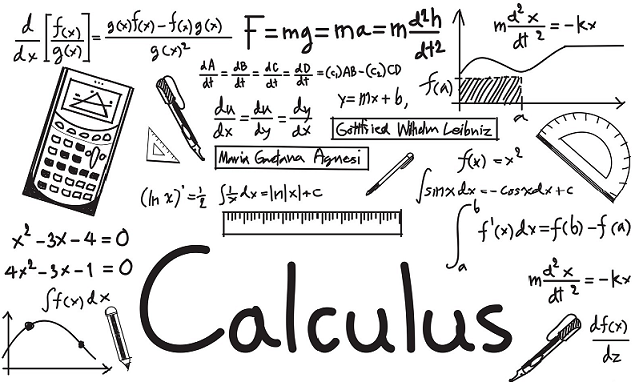 d/dx [f(x)/g(x)] = g(x)f(x) - f(x)g(x) / g(x)²
F = mg = ma = m d²h/dt²
m d²x/dt² = -kx
dA/dt = dB/dt = dC/dt = dD/dt = (c₁)AB - (c₂)CD
f(a)
a
du/dx = du/dy = dy/dx
y = mx + b,
Gottfried Wilhelm Leibniz
Maria Gaetana Agnesi
f(x) = x²
(ln x)' = 1/2
∫ 1/x dx = ln|x| + c
∫ sinx dx = -cosx dx + c
∫ₐᵇ f'(x) dx = f(b) - f(a)
x² - 3x - 4 = 0
4x² - 3x - 1 = 0
m d²x/dt² = -kx
∫ f(x) dx
Calculus
df(x)/dz